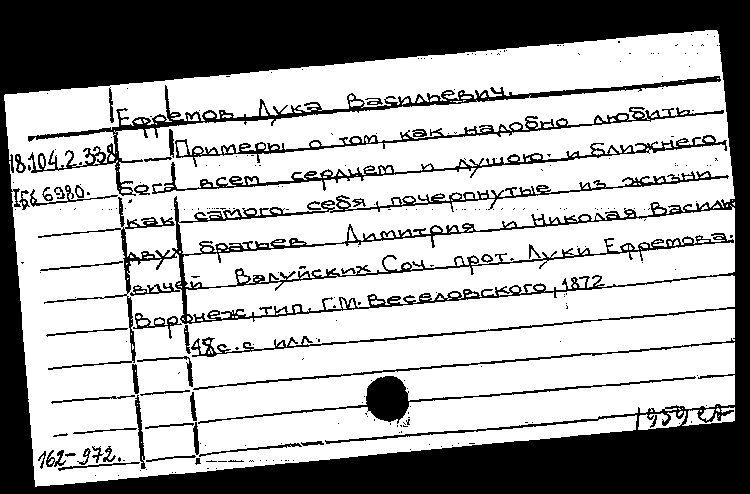 Ефремов, Лука Васильевич.
18.104.2.338 Примеры о том, как надобно любить
6980. Бога всем сердцем и душою и ближнего,
как самого себя, почерпнутые из жизни
двух братьев Димитрия и Николая Василь
вичей Валуйских. Соч. прот. Луки Ефремова.
Воронеж, тип. Г.М. Веселовского, 1872.
48с. с илл.
1959
162-972.